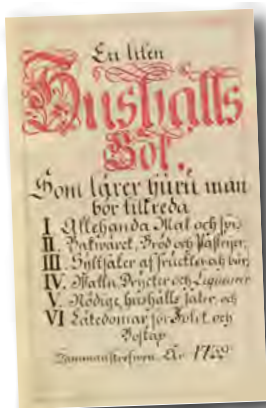 En liten
Hushålls
Bok,
Som lärer huru man
bör tillreda
I Allehanda Mat och
II. Bakverck, Bröd och Pästeijer,
III. Syltsaker af fruckter och bär,
IV. Watn, Drycker och Liqueurer
V. Nödige hushålls saker, och
VI Läkedomar för Folck och
Boskap
Sammanskrefwen, År 1759